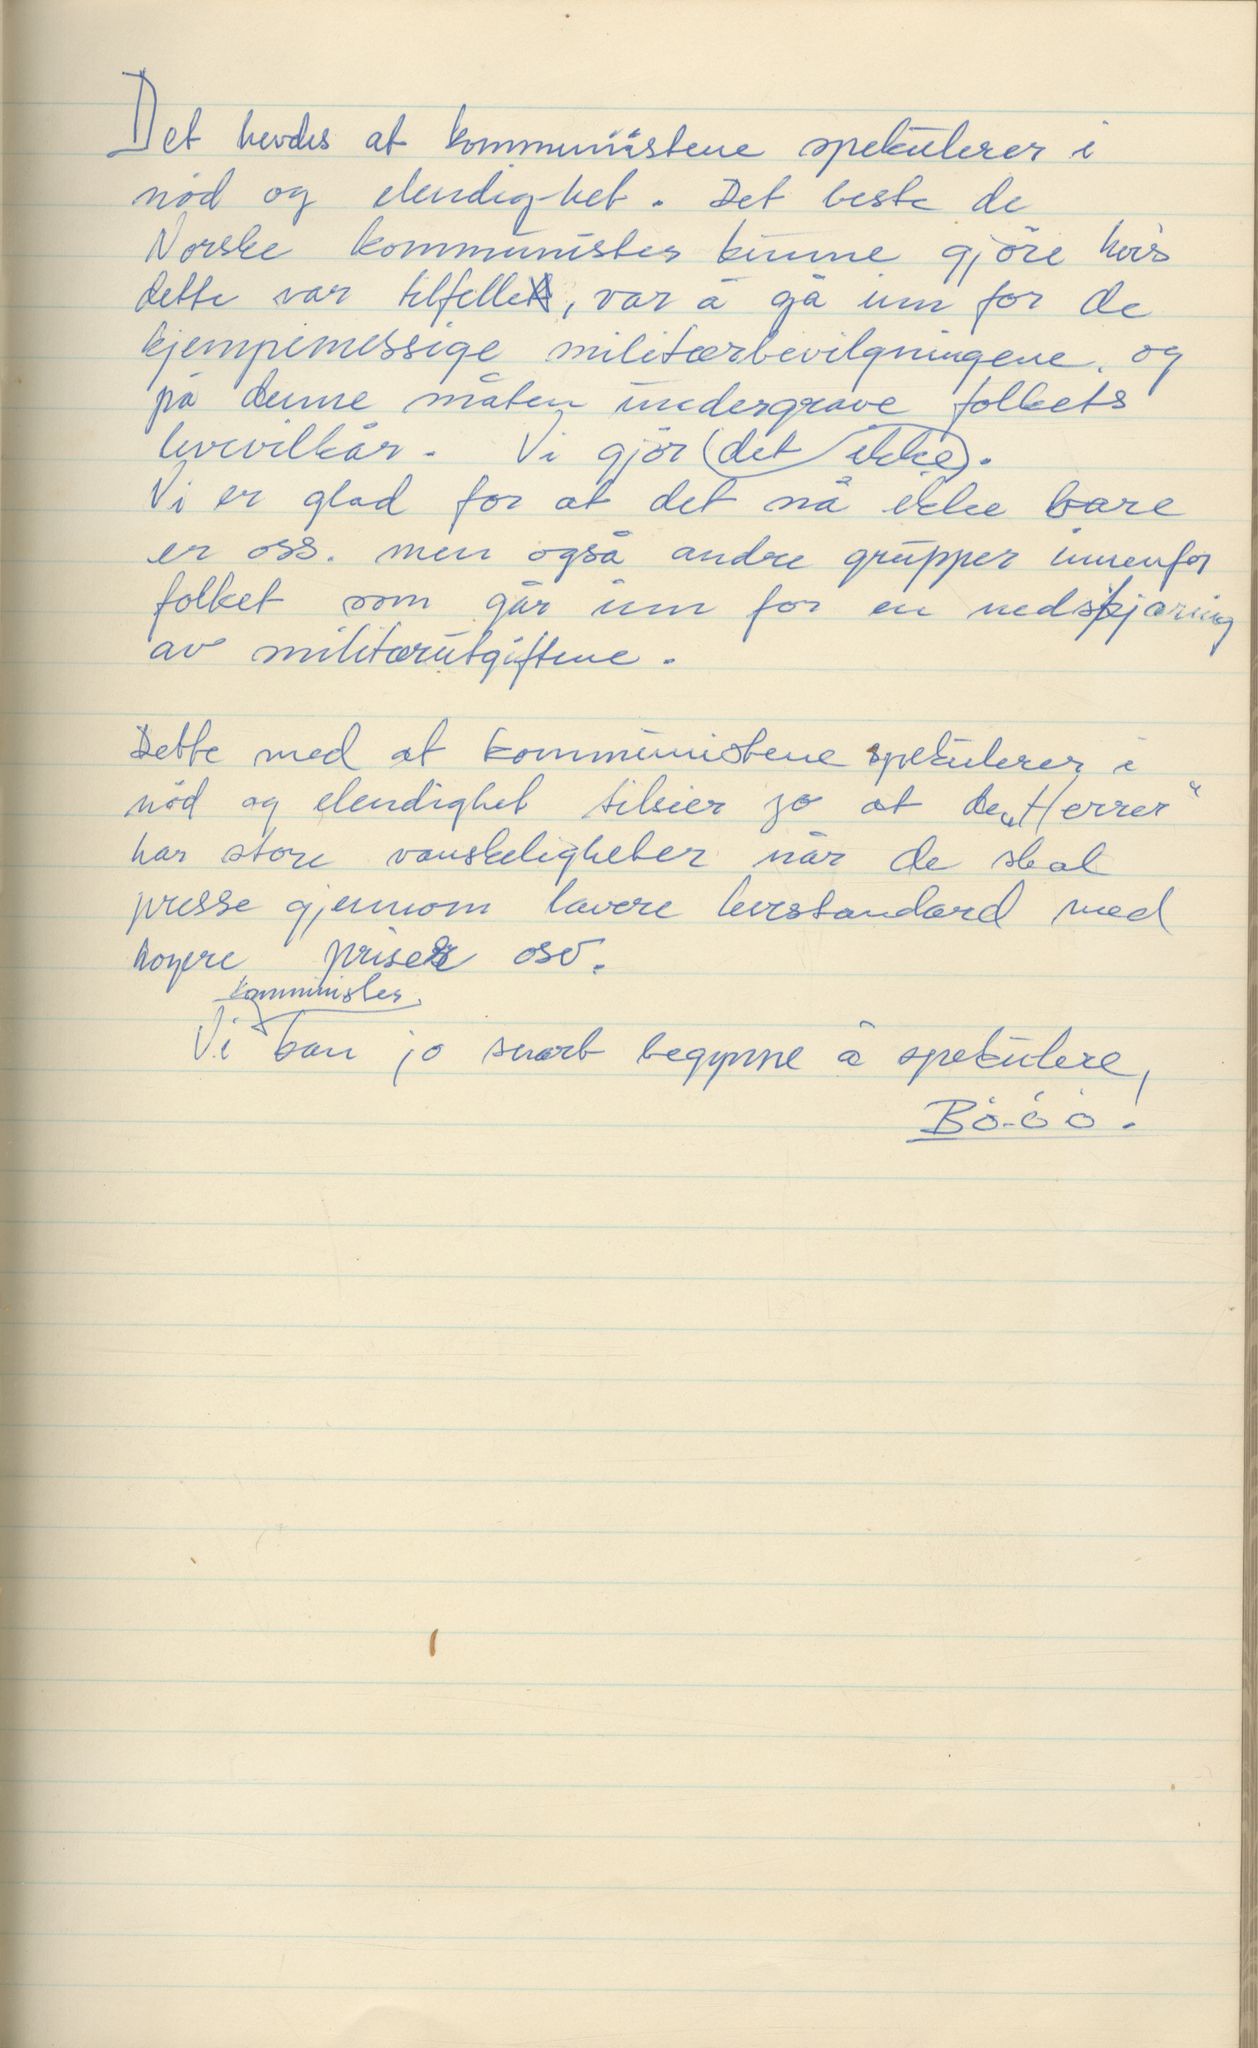 Det hevdes at kommunistene spekulerer i
nöd og elendighet. Det beste de
Norske kommunister kunne gjöre hvis
dette var tilfelle, var å gå inn for de
kjempemessige militærbevilgningene, og
på denne måten undergrave folkets
levevilkår. Vi gjör (det ikke).
Vi er glad for at det nå ikke bare
er oss. men også andre grupper innenfor
folket som går inn for en nedskjæring
av militærutgiftene.
Dette med at kommunistene spekulerer i
nöd og elendighet tilsier jo at de „Herrer"
har store vanskeligheter når de skal
presse gjennom lavere levestandard med
høyere priser osv.
kommunister
Vi kan jo snart begynne å spekulere,
Bö-ö ö!